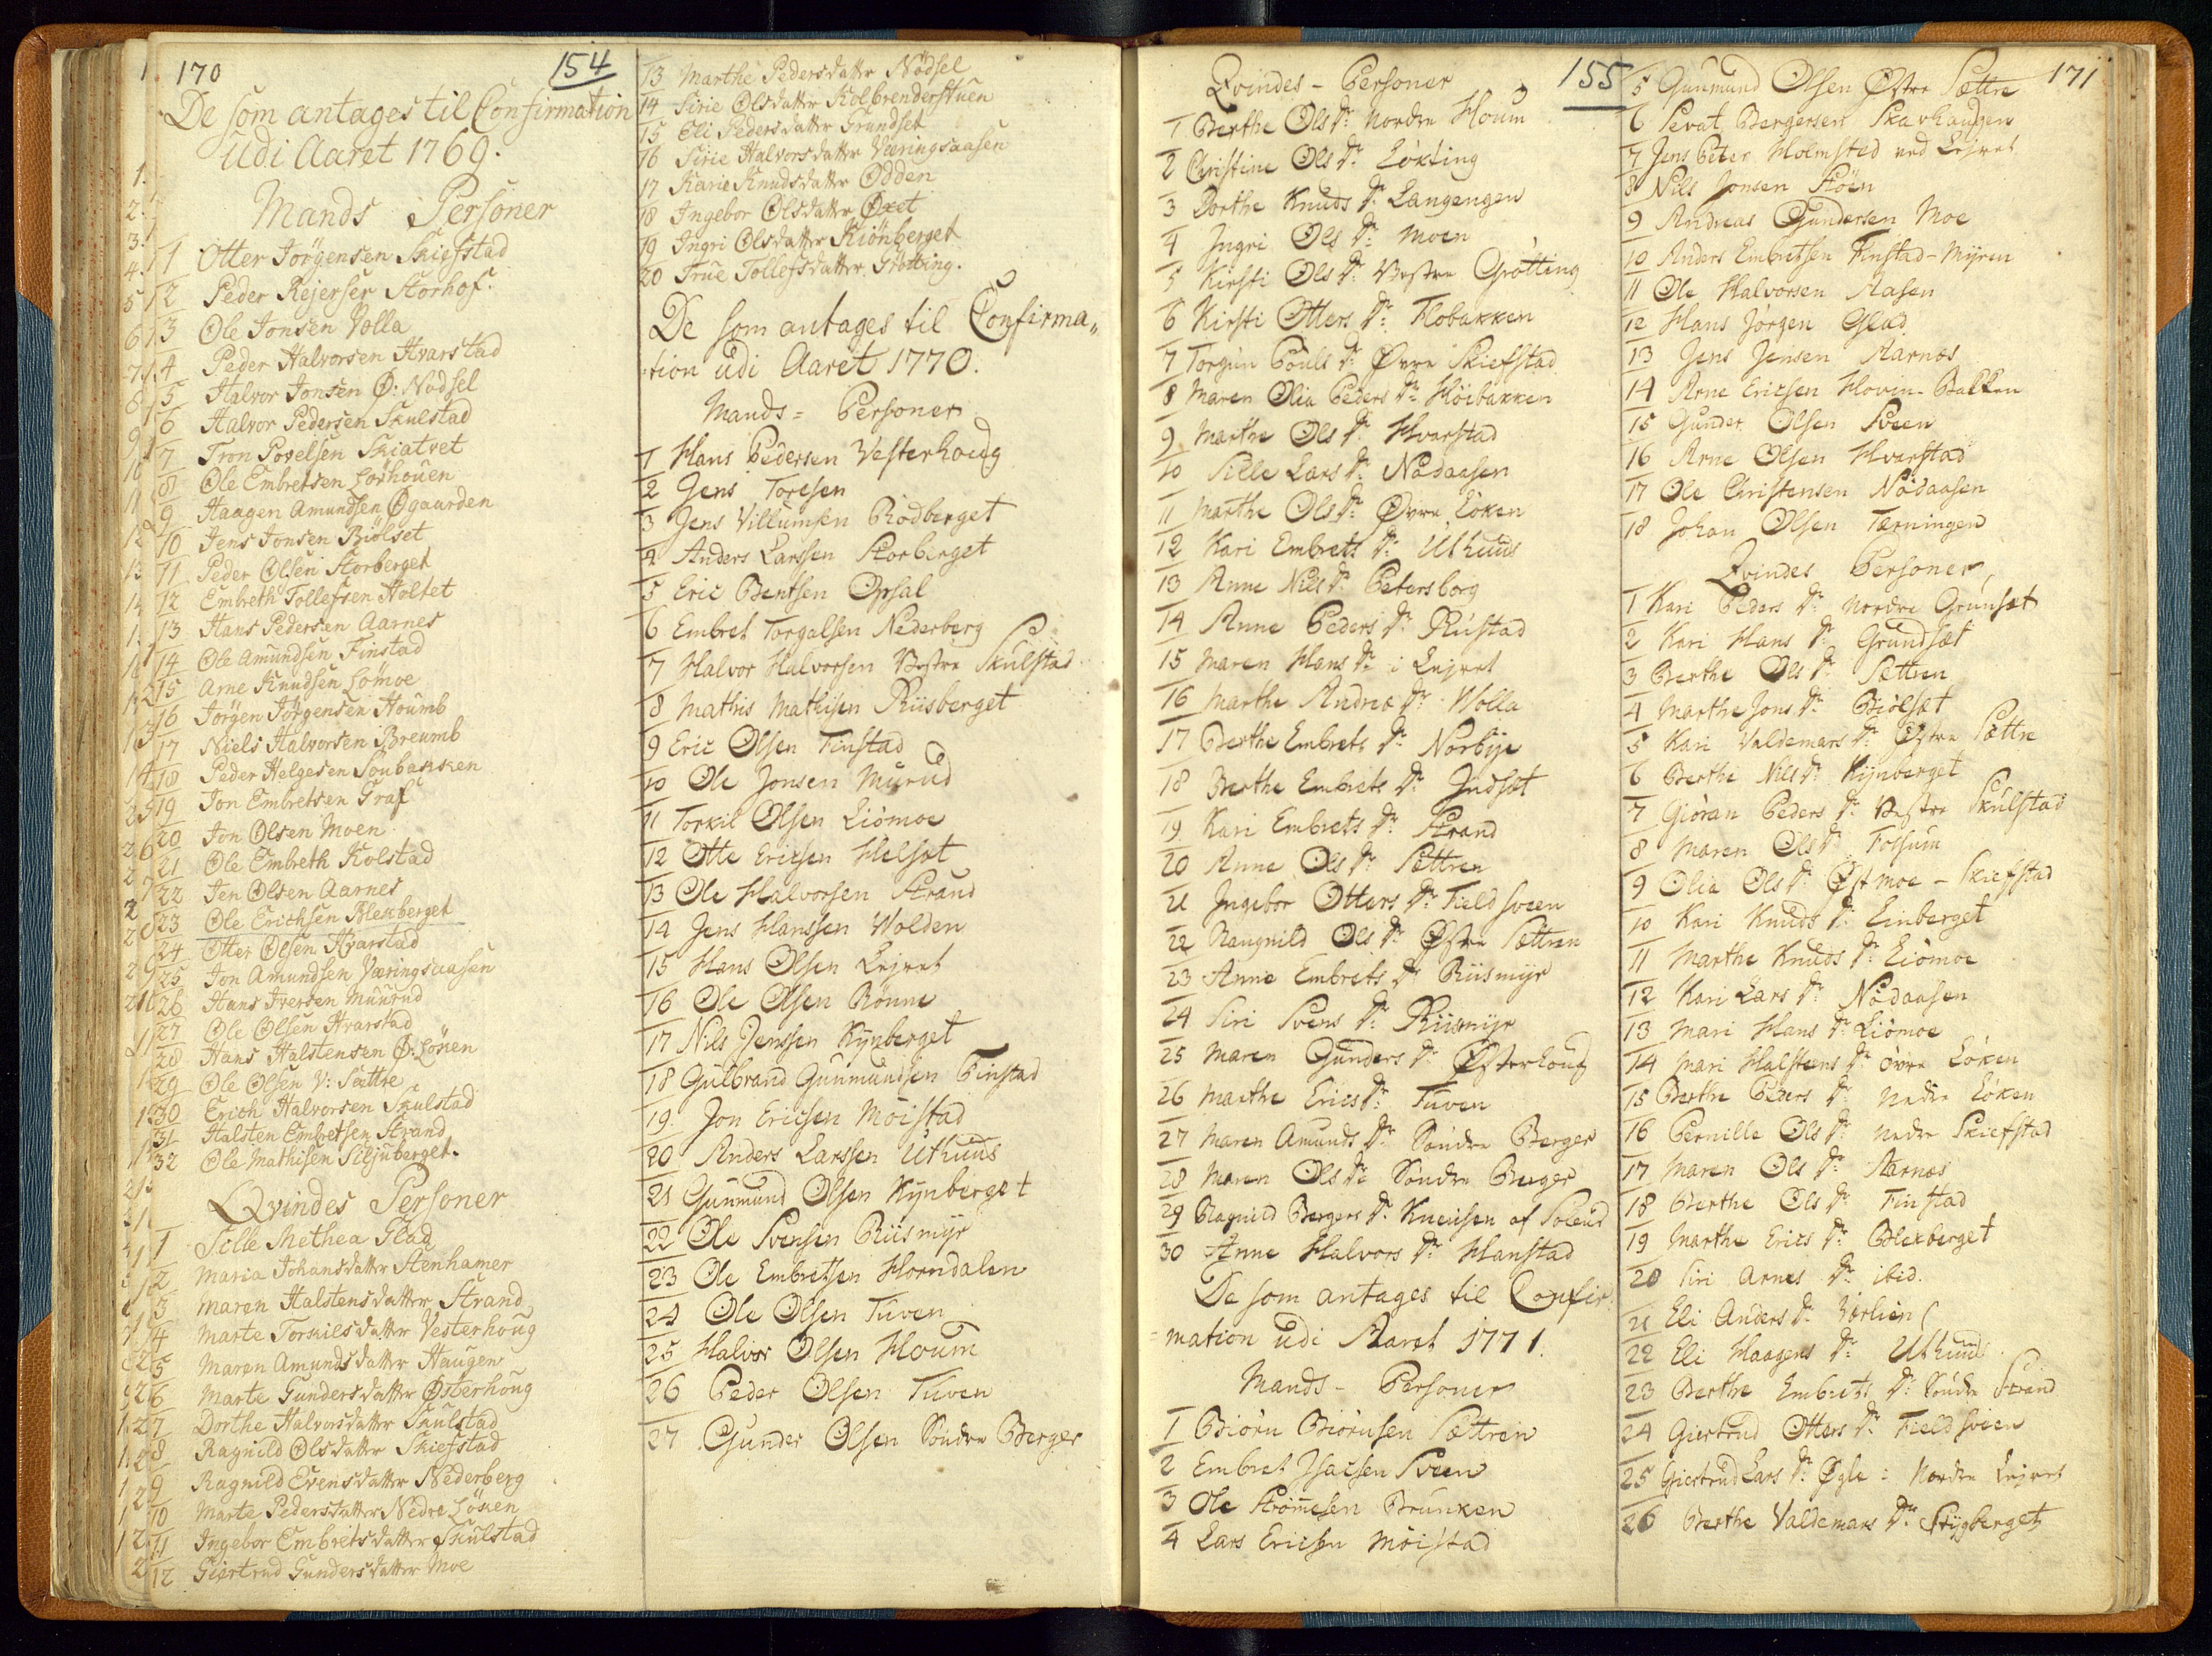 170
154
De som antages til Confirmation
udi Aaret 1769.
Mands Personer
1 Otter Jörgensen Skiefstad
2 Peder Rejerser Storhof.
3 Ole Jonsen Volla
4 Peder Halvorsen Hvarstad
5 Halvor Jonsen Ø: Nodsel
6 Halvor Pedersen Skulstad
7 Tron Povelsen Skiatvet
8 Ole Embretsen
9 Haagen Amundsen Øgaarden
10 Jens Jonsen Biölset
11 Peder Olsen Storberget
12 Embreth Tollefsen Holtet
13 Hans Pedersen Aarnes
14 Ole Amundsen Finstad
15 Arne Knudsen Lömoe
16 Jörgen Jörgensen Houmb
17 Niels Halvorsen Breumb
18 Peder Helgesen
19 Jon Embretsen Graf
20 Jon Olsen Moen
21 Ole Embreth Kolstad
22 Jen Olsen Aarnes
23 Ole Erichsen Blexberget
24 Otter Olsen Hvarstad
25 Jon Amundsen Væringsaasen
26 Hans Iversen Muurud
27 Ole Olsen Hvarstad
28 Hans Halstensen Ø: Löken
29 Ole Olsen V: Sættre
30 Erich Halvorsen Skulstad
31 Halsten Embretsen Strand
32 Ole Mathisen Siljuberget.
Qvindes Personer
1 Sille Methea Glad
2 Maria Johansdatter Stenhamer
3 Maren Halstensdatter Strand
4 Marte Torkilsdatter Vesterhoug
5 Maren Amundsdatter Haugen
6 Marte Gundersdatter Østerhoug
7 Dorthe Halvorsdatter Skulstad
8 Ragnild Olsdatter Skiefstad
9 Ragnild Evensdatter Nederberg
10 Marte Pedersdatter Nedre Löken
11 Ingebor Embretsdatter Skulstad
12 Giertrud Gundersdatter Moe
13 Marthe Pedersdatter Nödsel
14 Sirie Olsdatter Kolbrenderstuen
15 Eli Pedersdatter Grundset
16 Sirie Halvorsdatter Væringsaasen
17 Karie Knudsdatter Odden
18 Ingebor Olsdatter Øxet
19 Ingri Olsdatter Kiönberget
20 True Tollefsdatter Grötting.
De som antages til Confirma„
tion udi Aaret 1770.
Mands= Personer
1 Hans Pedersen Vesterhoug
2 Jens Toresen
3 Jens Villumsen Rödberget
4 Anders Larssen Storberget
5 Eric Bentsen Opsal
6 Embret Torgalsen Nederberg
7 Halvor Halvorsen Vestre Skulstad
8 Mathis Mathisen Riisberget
9 Eric Olsen Finstad
10 Ole Jonsen Murud
11 Torkil Olsen Liömoe
12 Otte Ericsen Helset
13 Ole Halvorsen Strand
14 Jens Hanssen Wolden
15 Hans Olsen Lejret
16 Ole Olsen Rönne
17 Nils Jenssen Kynberget
18 Gulbrand Gunmundsen Finstad
19. Jon Ericsen Möistad
20 Anders Larssen Uthuus
21 Gunmund Olsen Kynberget
22 Ole Svensen Riismyr
23 Ole Embretsen Horndalen
24 Ole Olsen Tuven
25 Halvor Olsen Houm
26 Peder Olsen Tuven
27 Gunder Olsen Söndre Berger
155
171
Qvindes - Personer
1 Berthe Ols Dr. Nordre Houm
2 Christine Ols Dr. Löxting
3 Dorthe Knuds Dr. Langengen
4 Ingri Ols Dr: Moen
5 Kirsti Ols Dr. Vestre Grötting
6 Kirsti Otters Dr: Flobakken
7 Torgun Pouls Dr. Øvre Skiefstad
8 Maren Olia Peders Dr. Höibakken
9 Marthe Ols Dr. Hvarstad
10 Sille Lars Dr. Nödaasen
11 Marthe Ols Dr. Øvre Löken
12 Kari Embrets Dr. Uthuus
13 Anne Nils Dr. Petersborg
14 Anne Peders Dr. Rustad
15 Maren Hans Dr. i Lejret
16 Marthe Andreæ Dr. Wolla
17 Berthe Embrets Dr. Norbye
18 Berthe Embrets Dr. Indset
19 Kari Embrets Dr. Strand
20 Anne Ols Dr. Sættren
21 Ingebor Otters Dr. Fieldsveen
22 Raugnild Ols Dr. Østre Sættren
23 Anne Embrets Dr. Riismyr
24 Siri Svens Dr. Riismyr
25 Maren Gunders Dr. Østerhoug
26 Marthe Erics Dr. Tuven
27 Maren Amunds Dr. Söndre Berger
28 Maren Ols Dr. Söndre Berger
29 Ragnild Bergers Dr. Knensen af Soleud
30 Anne Halvors Dr. Hanstad
De som antages til Confir=
=mation udi Aaret 1771.
Mands - Personer
1 Biörn Biörnsen Sættren
2 Embret Isacsen Sveen
3 Ole Strömmesen Brunken
4 Lars Ericsen Möistad
5 Gunmund Olsen Østre Sættre
6 Sevat Bergersen Skavhaugen
7 Jens Peter Holmsted ved Lejret
8 Nils Jonsen Stöen
9 Andreas Gundersen Moe
10 Anders Embretsen Finstad-Myren
11 Ole Halvorsen Aasen
12 Hans Jörgen Glad
13 Jens Jensen Aarnæs
14 Arne Ericsen Hovin-Bakken
15 Gunder Olsen Sveen
16 Arne Olsen Hvarstad
17 Ole Christensen Nödaasen
18 Johan Olsen Tærningen
Qvindes Personer
1 Kari Peders Dr. Nordre Grunset
2 Kari Hans Dr. Grundset
3 Berthe Ols Dr. Sættren
4 Marthe Jons Dr. Biölset
5 Kari Valdemars Dr. Østre Sættre
6 Berthe Nils Dr. Kynberget
7 Giöran Peders Dr. Vestre Skulstad
8 Maren Ols Dr. Fossum
9 Olia Ols Dr. Østmoe - Skiefstad
10 Kari Knuds Dr. Einberget
11 Marthe Knuds Dr. Liömoe
12 Kari Lars Dr. Nödaasen
13 Mari Hans Dr. Liömoe
14 Mari Halstens Dr. övre Löken
15 Berthe Peders Dr. Nedre Löken
16 Pernille Ols Dr. Nedre Skiefstad
17 Maren Ols Dr. Aarnæs
18 Berthe Ols Dr. Finstad
19 Marthe Erics Dr. Blexberget
20 Siri Arnes Dr. ibid.
21 Eli Anders Dr. Vorlien
22 Eli Haagens Dr. Uthuus
23 Berthe Embrets Dr. Söndre Strand
24 Giertrud Otters Dr. Fieldsveen
25 Giertrud Lars Dr. Øgle i Nordre Lejret
26 Berthe Valdemars Dr. Stygberget